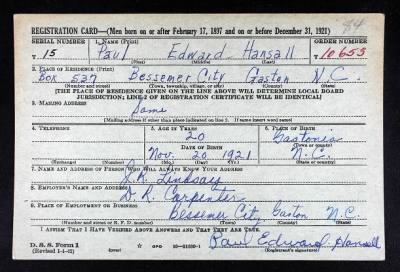 44
REGISTRATION CARD—(Men born on or after February 17, 1897 and on or before December 31, 1921)
SERIAL NUMBER 1. NAME (Print) ORDER NUMBER
T 15 Paul Edward Hansell 10655
2. PLACE OF RESIDENCE (Print)
Box 537 Bessemer City Gaston N.C.
(Number and street) (Town, township, village, or city) (County) (State)
[THE PLACE OF RESIDENCE GIVEN ON THE LINE ABOVE WILL DETERMINE LOCAL BOARD
JURISDICTION; LINE 2 OF REGISTRATION CERTIFICATE WILL BE IDENTICAL]
3. MAILING ADDRESS
Same
[Mailing address if other than place indicated on line 2. If same insert word same]
4. TELEPHONE 5. AGE IN YEARS 6. PLACE OF BIRTH
20 Gastonia
DATE OF BIRTH (Town or county)
Nov. 20 1921 N.C.
(Exchange) (Number) (Mo.) (Day) (Yr.) (State or country)
7. NAME AND ADDRESS OF PERSON WHO WILL ALWAYS KNOW YOUR ADDRESS
Lindsay
8. EMPLOYER'S NAME AND ADDRESS
D. R. Carpenter
9. PLACE OF EMPLOYMENT OR BUSINESS
Bessemer City, Gaston N.C.
(Number and street or R. F. D. number) (Town) (County) (State)
I AFFIRM THAT I HAVE VERIFIED ABOVE ANSWERS AND THAT THEY ARE TRUE.
D. S. S. Form 1
(Revised 1-1-42) GPO Paul Edward Hansell